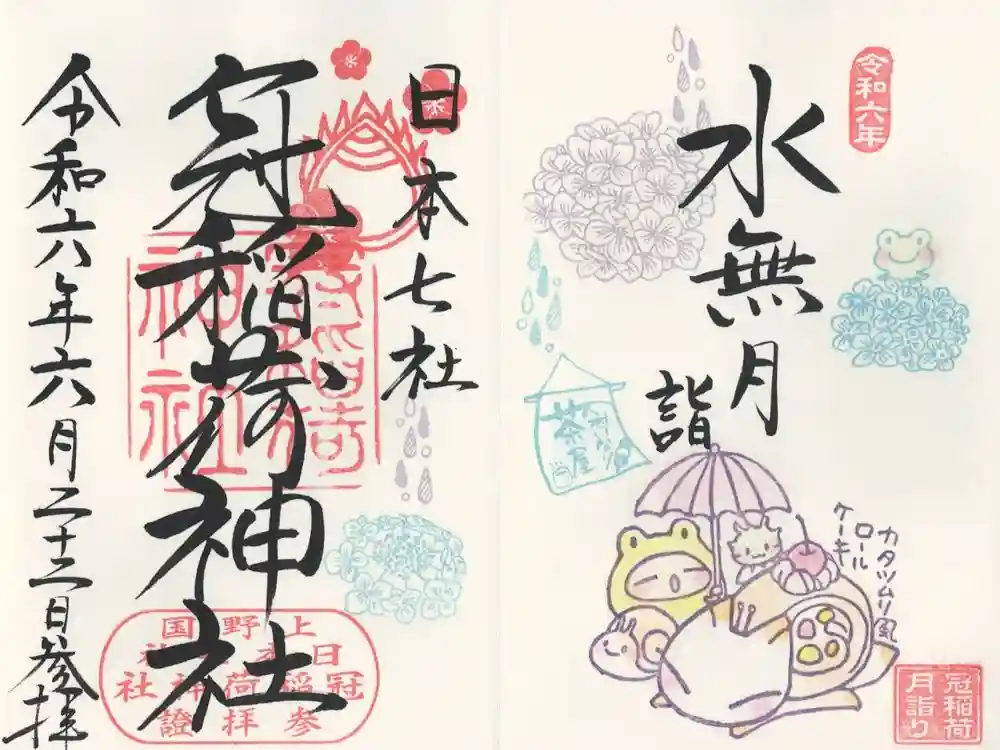 令和六年
水無月
詣
冠稲荷
茶屋
カタツムリ風
ロール
ケーキ
冠稲荷
月詣り
日本七社
冠稲荷神社
令和六年六月二十三日参拝
上野国
日本七社
冠稲荷神社
参拝證